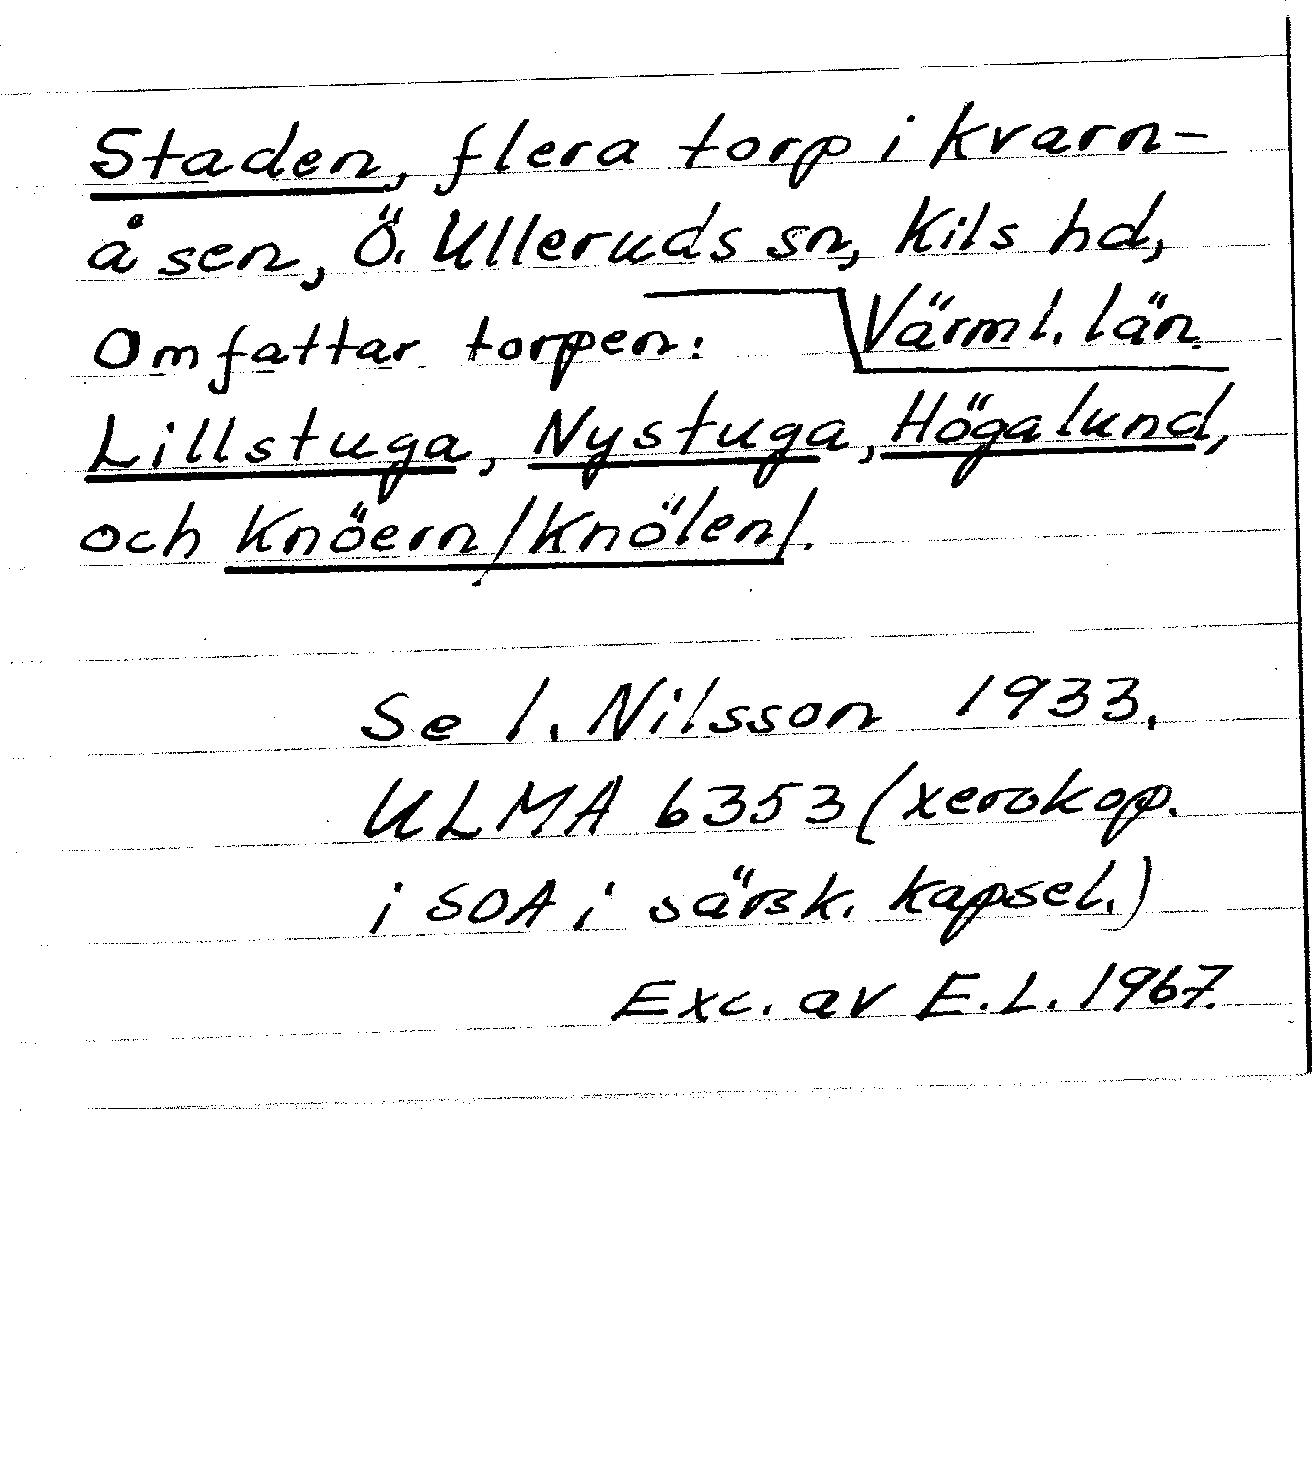 Staden, flera torp i Kvarn-
åsen, Ö. Ulleruds sn, Kils hd,
Värml. län.
Omfattar torpen:
Lillstuga, Nystuga, Högalund,
och Knöern/Knölen/.
Se I. Nilsson 1933.
ULMA 6353 (xerokop.
i SOA i särsk. kapsel.)
Exc. av E.L. 1967.